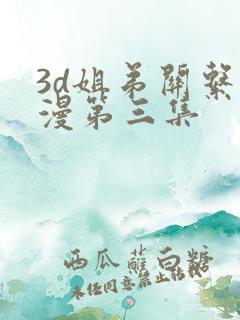 3d姐弟關繫
漫第三集
西瓜蘸白糖
未经同意禁止转载